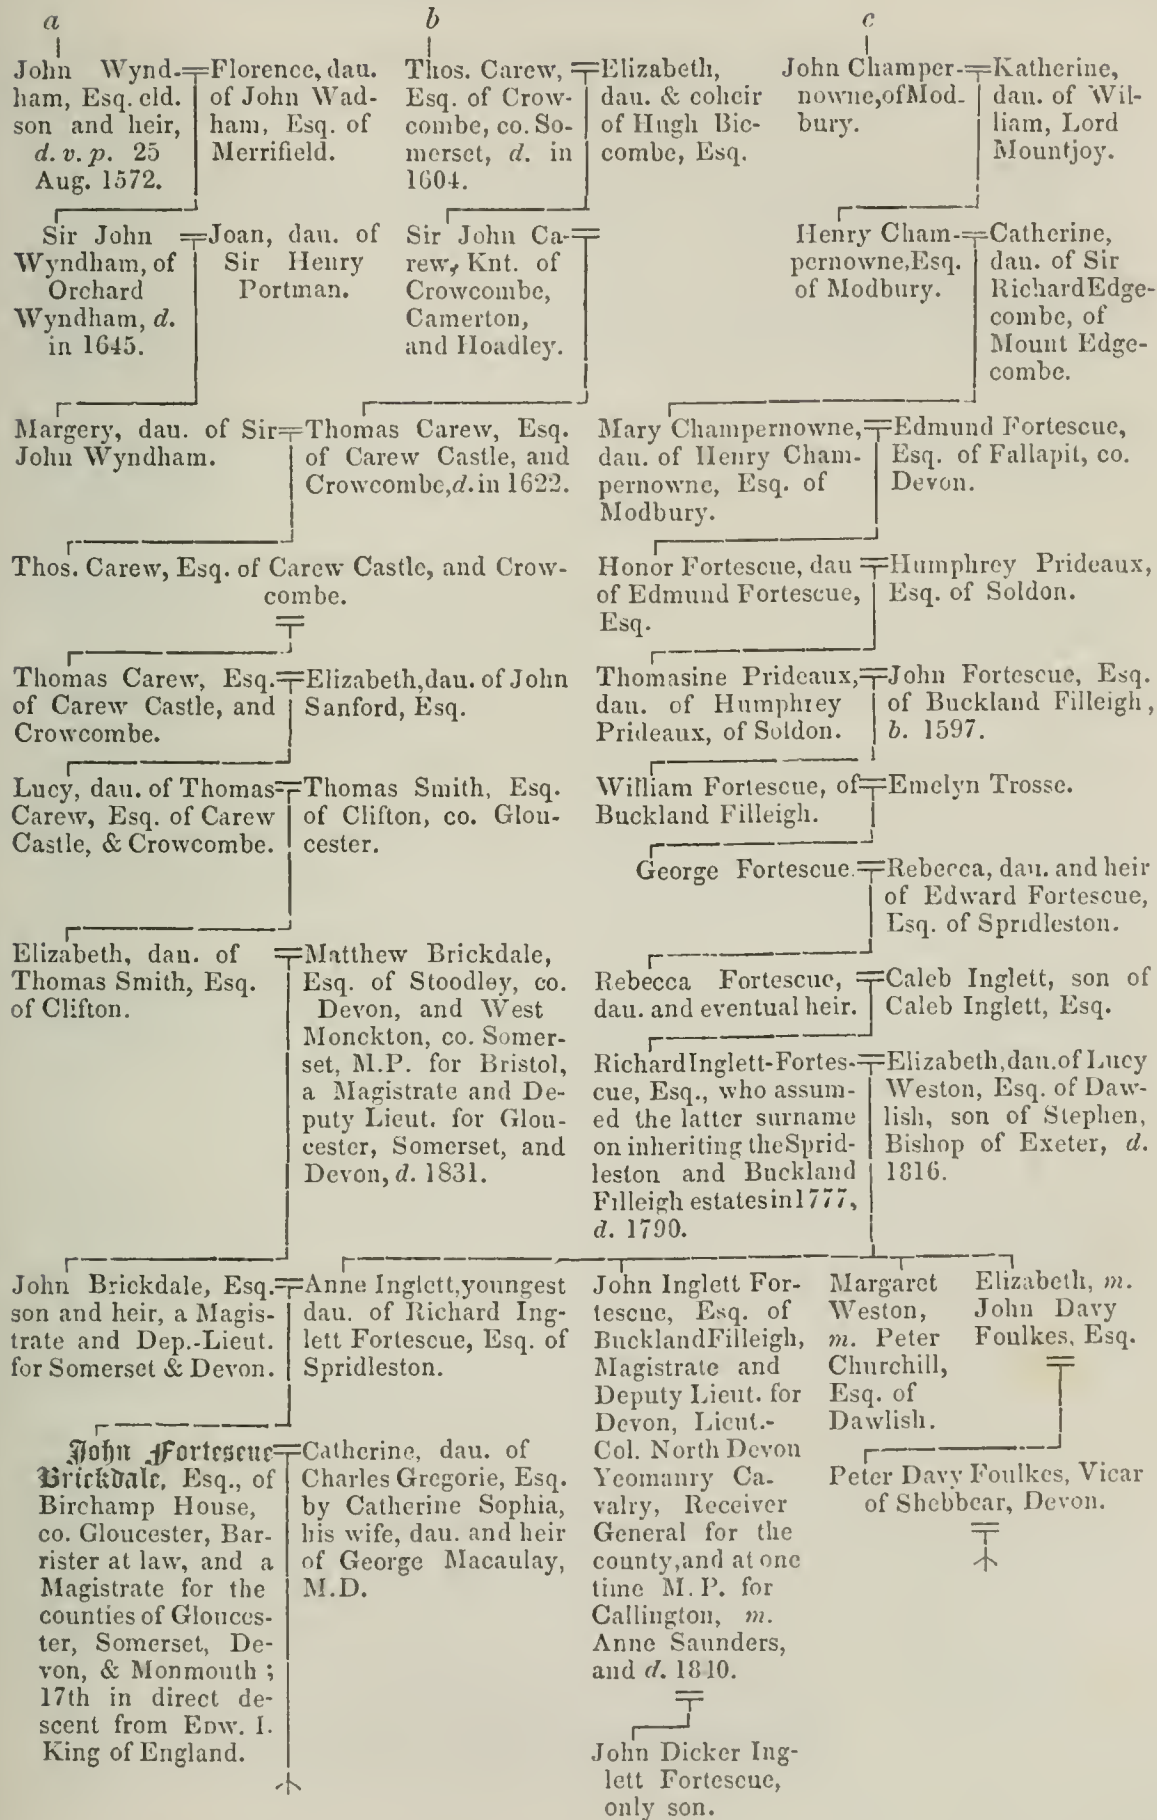 a
b
c
John Wynd-
ham, Esq. eld.
son and heir,
d. v. p. 25
Aug. 1572.
Florence, dau.
of John Wad-
ham, Esq. of
Merrifield.
Thos. Carew,
Esq. of Crow-
combe, co. So-
merset, d. in
1604.
Elizabeth,
dau. & coheir
of Hugh Bic-
combe, Esq.
John Champer-
nowne, of Mod-
bury.
Katherine,
dau. of Wil-
liam, Lord
Mountjoy.
Sir John
Wyndham, of
Orchard
Wyndham, d.
in 1645.
Joan, dau. of
Sir Henry
Portman.
Sir John Ca-
rew, Knt. of
Crowcombe,
Camerton,
and Hoadley.
Henry Cham-
pernowne, Esq.
of Modbury.
Catherine,
dau. of Sir
Richard Edge-
combe, of
Mount Edge-
combe.
Margery, dau. of Sir
John Wyndham.
Thomas Carew, Esq.
of Carew Castle, and
Crowcombe, d. in 1622.
Mary Champernowne,
dau. of Henry Cham-
pernowne, Esq. of
Modbury.
Edmund Fortescue,
Esq. of Fallapit, co.
Devon.
Thos. Carew, Esq. of Carew Castle, and Crow-
combe.
Honor Fortescue, dau
of Edmund Fortescue,
Esq.
Humphrey Prideaux,
Esq. of Soldon.
Thomas Carew, Esq.
of Carew Castle, and
Crowcombe.
Elizabeth, dau. of John
Sanford, Esq.
Thomasine Prideaux,
dau. of Humphrey
Prideaux, of Soldon.
John Fortescue, Esq.
of Buckland Filleigh,
b. 1597.
Lucy, dau. of Thomas
Carew, Esq. of Carew
Castle, & Crowcombe.
Thomas Smith, Esq.
of Clifton, co. Glou-
cester.
William Fortescue, of
Buckland Filleigh.
Emelyn Trosse.
George Fortescue.
Rebecca, dau. and heir
of Edward Fortescue,
Esq. of Spridleston.
Elizabeth, dau. of
Thomas Smith, Esq.
of Clifton.
Matthew Brickdale,
Esq. of Stoodley, co.
Devon, and West
Monckton, co. Somer-
set, M.P. for Bristol,
a Magistrate and De-
puty Lieut. for Glou-
cester, Somerset, and
Devon, d. 1831.
Rebecca Fortescue,
dau. and eventual heir.
Caleb Inglett, son of
Caleb Inglett, Esq.
Richard Inglett-Fortes-
cue, Esq., who assum-
ed the latter surname
on inheriting the Sprid-
leston and Buckland
Filleigh estates in 1777,
d. 1790.
Elizabeth, dau. of Lucy
Weston, Esq. of Daw-
lish, son of Stephen,
Bishop of Exeter, d.
1816.
John Brickdale, Esq.
son and heir, a Magis-
trate and Dep.-Lieut.
for Somerset & Devon.
Anne Inglett, youngest
dau. of Richard Ing-
lett Fortescue, Esq. of
Spridleston.
John Inglett For-
tescue, Esq. of
Buckland Filleigh,
Magistrate and
Deputy Lieut. for
Devon, Lieut.-
Col. North Devon
Yeomanry Ca-
valry, Receiver
General for the
county, and at one
time M. P. for
Callington, m.
Anne Saunders,
and d. 1840.
Margaret
Weston,
m. Peter
Churchill,
Esq. of
Dawlish.
Elizabeth, m.
John Davy
Foulkes, Esq.
John Fortescue
Brickdale, Esq., of
Birchamp House,
co. Gloucester, Bar-
rister at law, and a
Magistrate for the
counties of Glouces-
ter, Somerset, De-
von, & Monmouth ;
17th in direct de-
scent from EDW. I.
King of England.
Catherine, dau. of
Charles Gregorie, Esq.
by Catherine Sophia,
his wife, dau. and heir
of George Macaulay,
M.D.
Peter Davy Foulkes, Vicar
of Shebbear, Devon.
John Dicker Ing-
lett Fortescue,
only son.